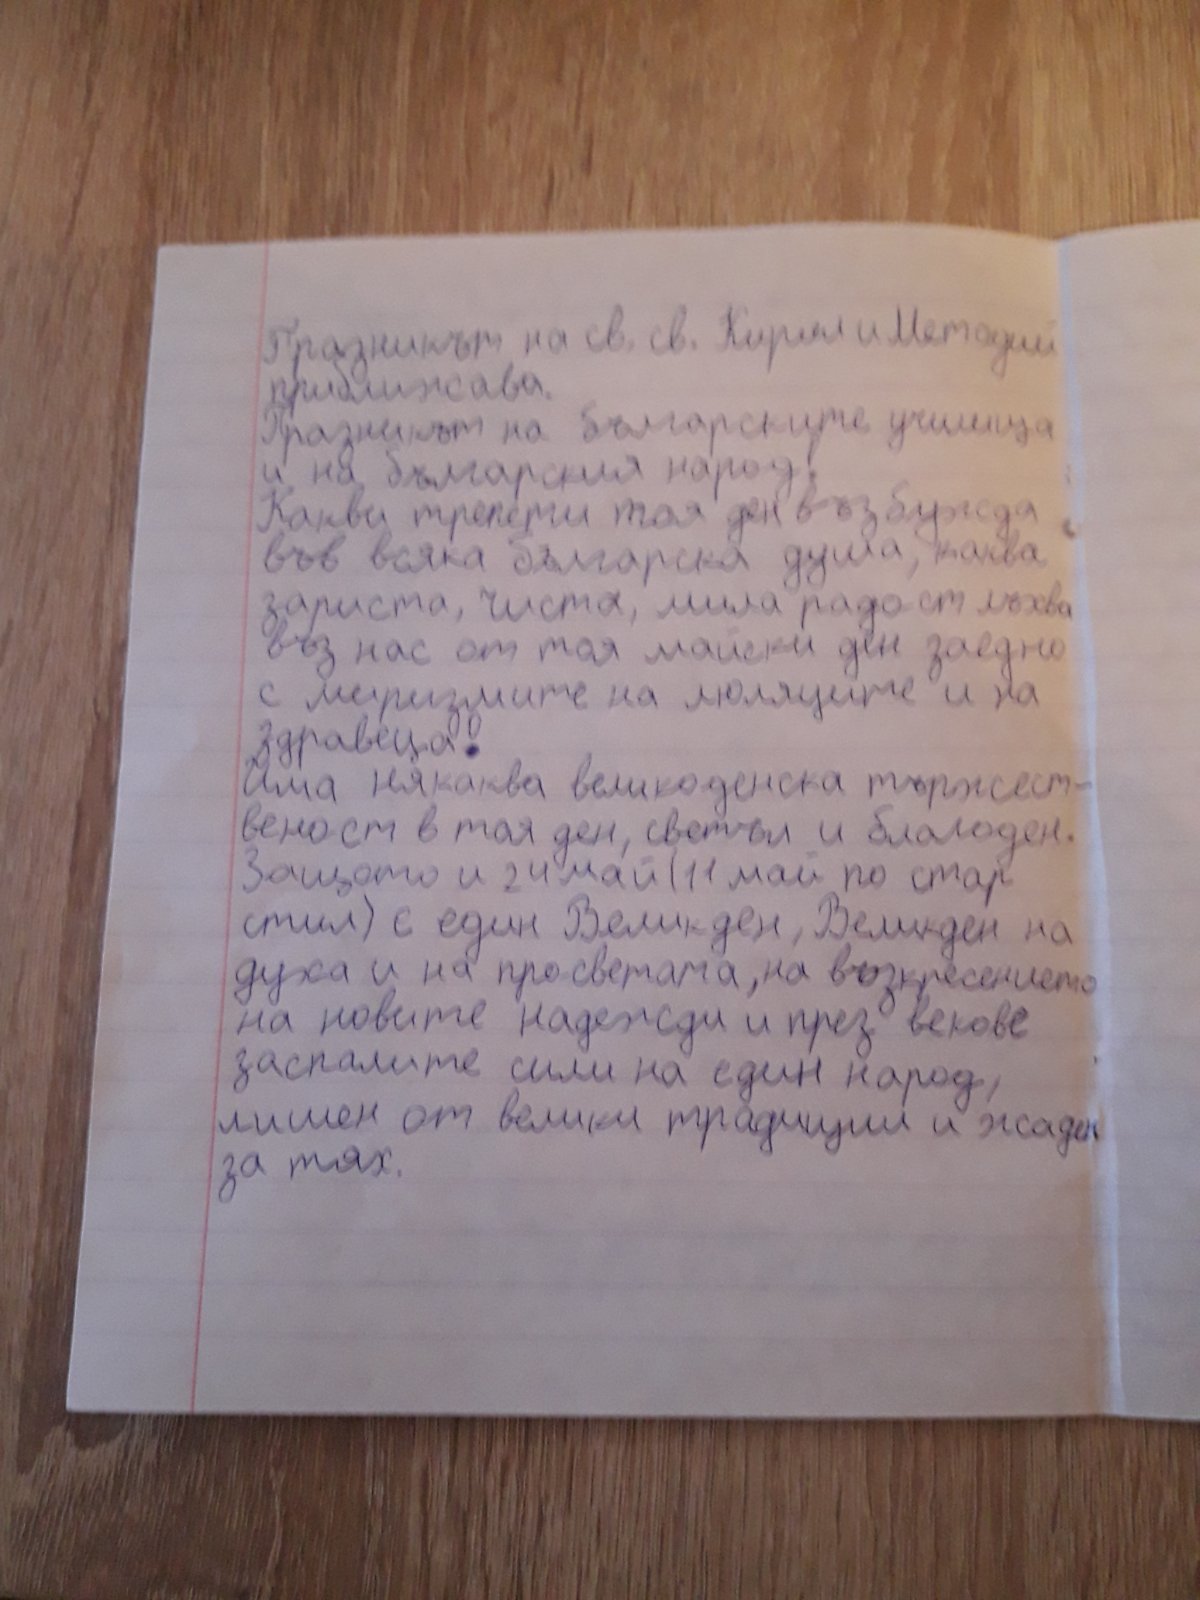 Празникът на св. св. Кирил и Методий
приближава.
Празникът на българските училища
и на българския народ!
Какви трепети тоя ден възбужда
във всяка българска душа, каква
зариста, чиста, мила радост лъхва
въз нас от тоя майски ден заедно
с миризмите на люляците и на
здравеца!
Има някаква великоденска тържест-
веност в тоя ден, светъл и благоден.
Защото и 24 май (11 май по стар
стил) е един Великден, Великден на
духа и на просветата, на възкресението
на новите надежди и през векове
заспалите сили на един народ,
лишен от велики традиции и жаден
за тях.